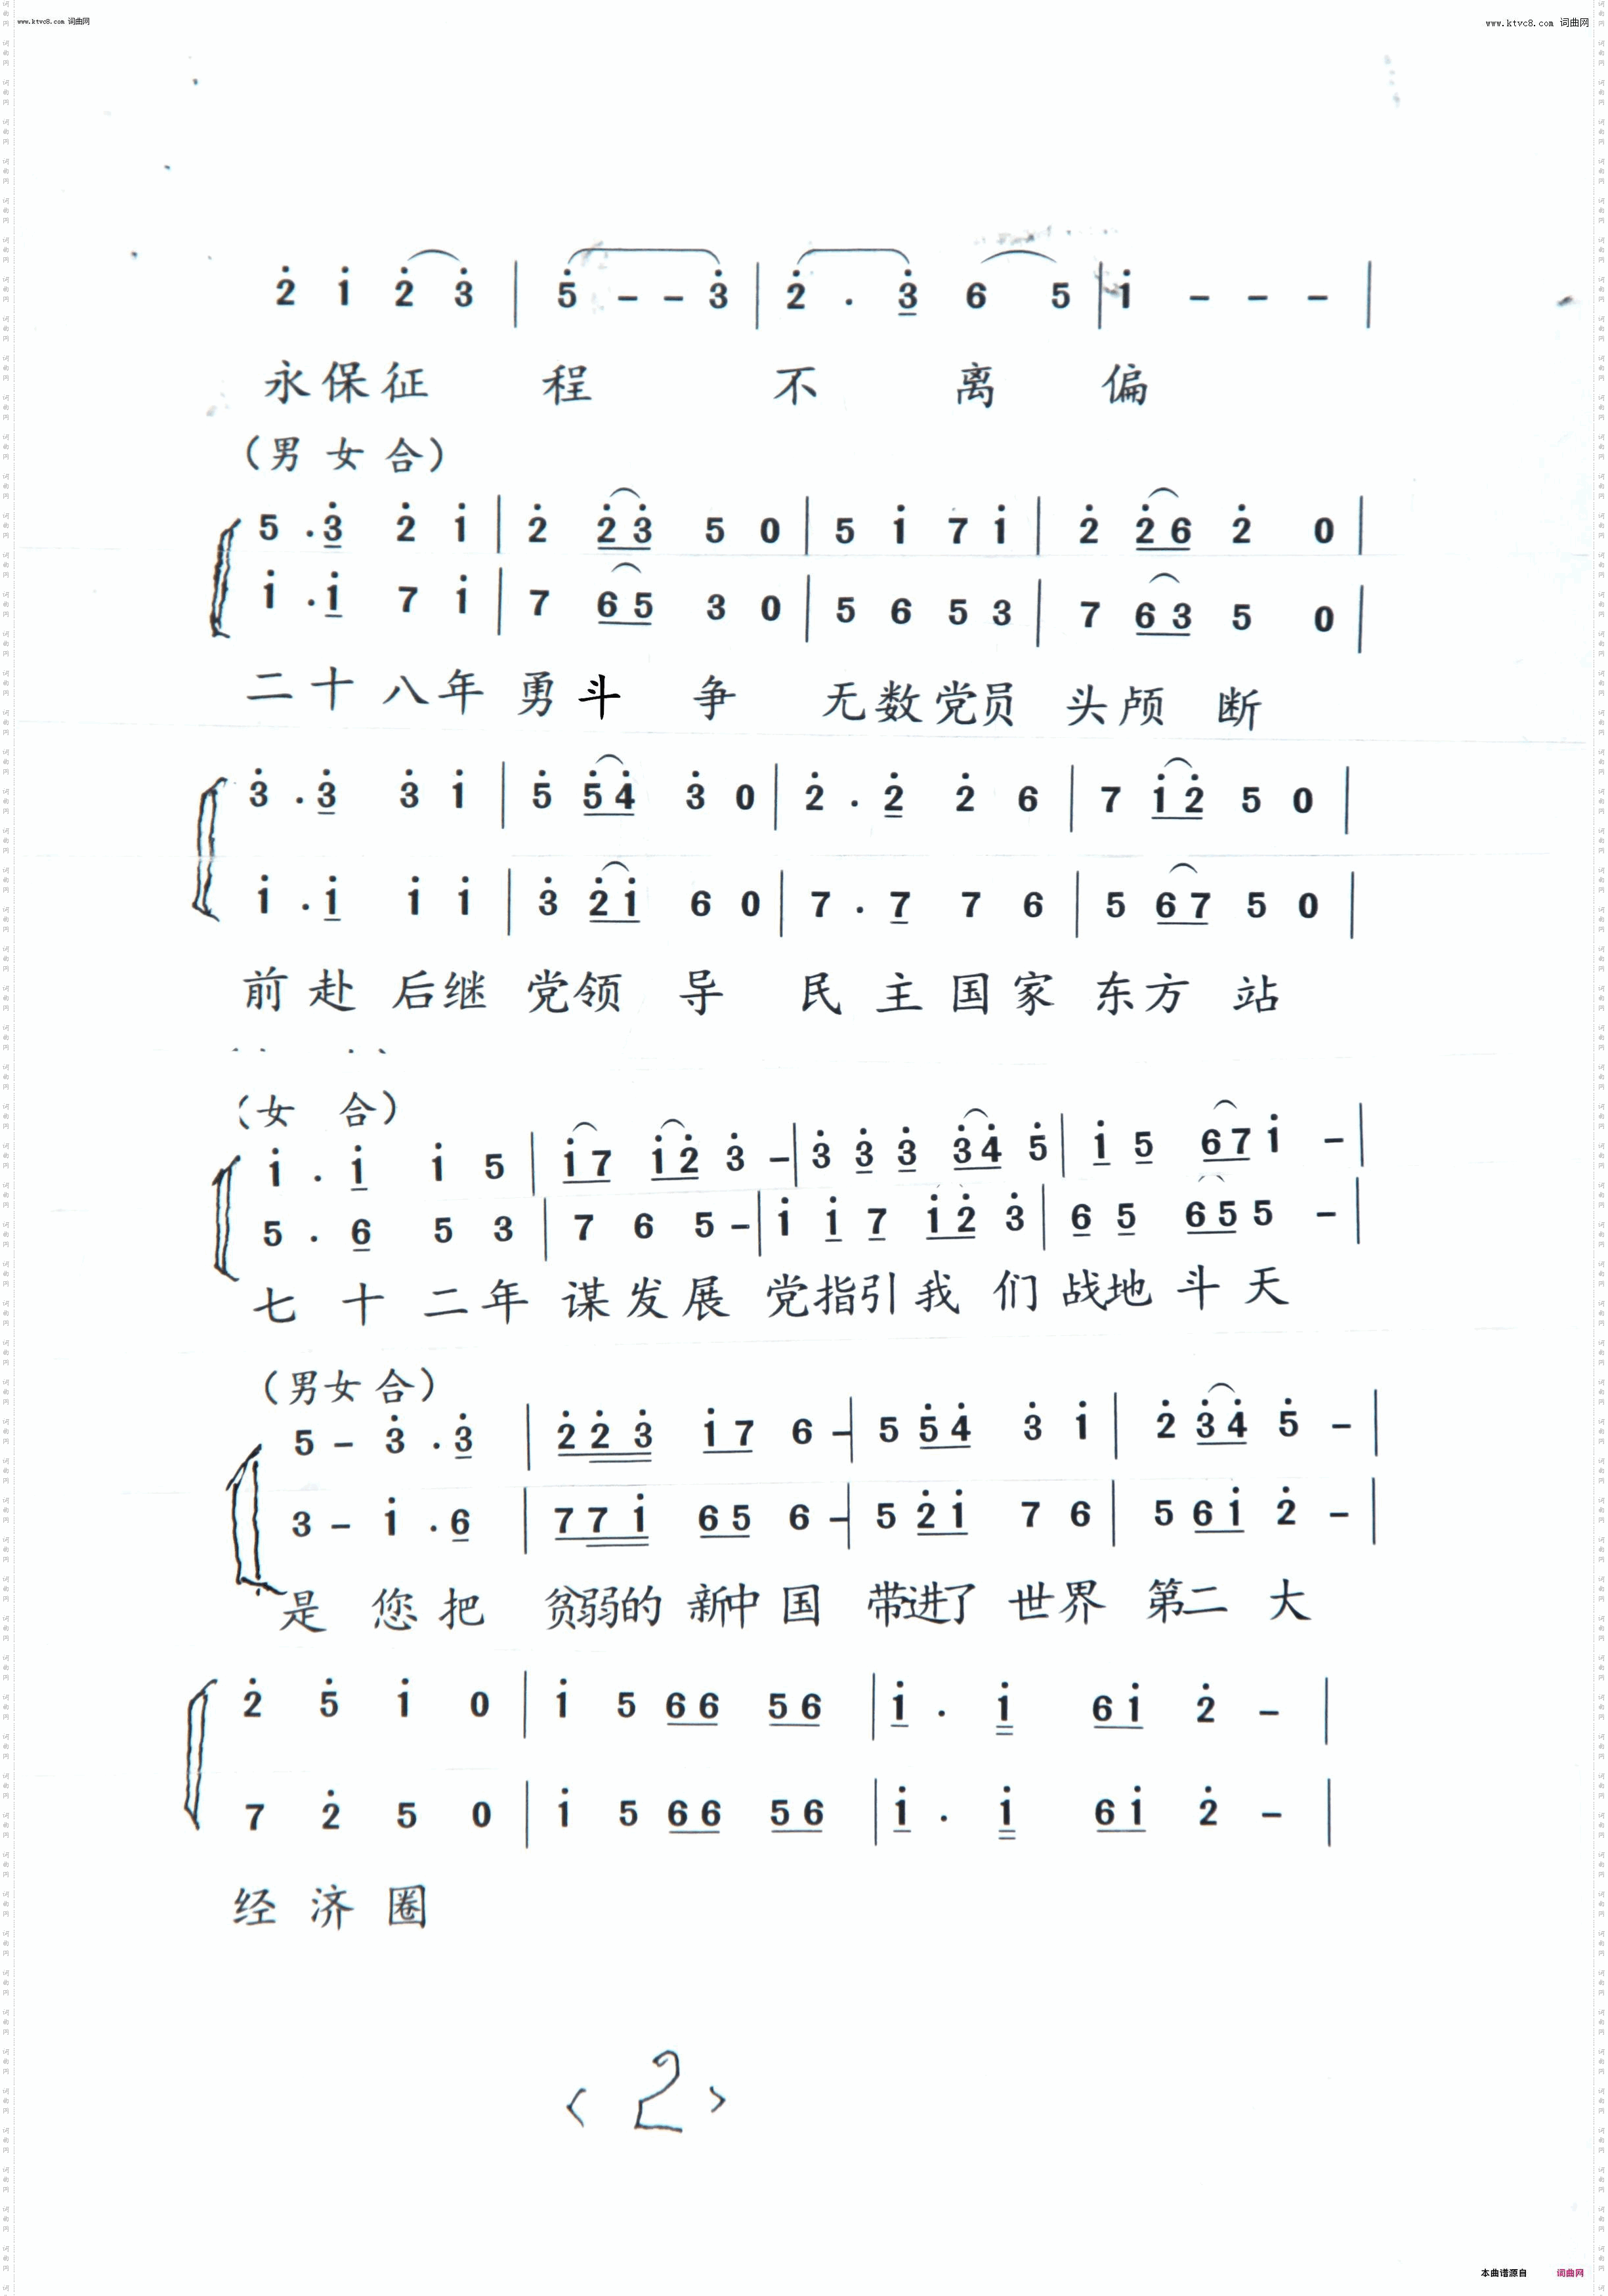 www.ktvc8.com 词曲网
www.ktvc8.com 词曲网
2̇ 1̇ 2̇ 3̇ | 5̇ - - 3̇ | 2̇ . 3̇ 6 5 | 1̇ - - - |
永保征 程 不 离 偏
（男 女 合）
5 . 3̇ 2̇ 1̇ | 2̇ 2̇ 3̇ 5 0 | 5 1̇ 7 1̇ | 2̇ 2̇ 6 2̇ 0 |
1̇ . 1̇ 7 1̇ | 7 6 5 3 0 | 5 6 5 3 | 7 6 3 5 0 |
二十八年 勇斗 争 无数党员 头颅 断
3̇ . 3̇ 3̇ 1̇ | 5̇ 5̇ 4̇ 3̇ 0 | 2̇ . 2̇ 2̇ 6 | 7 1̇ 2̇ 5 0 |
1̇ . 1̇ 1̇ 1̇ | 3̇ 2̇ 1̇ 6 0 | 7 . 7 7 6 | 5 6 7 5 0 |
前赴 后继 党领 导 民 主 国 家 东方 站
（女 合）
1̇ . 1̇ 1̇ 5 | 1̇ 7 1̇ 2̇ 3̇ - | 3̇ 3̇ 3̇ 3̇ 4̇ 5̇ | 1̇ 5 6 7 1̇ - |
5 . 6 5 3 | 7 6 5 - | 1̇ 1̇ 7 1̇ 2̇ 3̇ | 6 5 6 5 5 - |
七 十 二 年 谋 发 展 党指引 我 们 战地 斗 天
（男女 合）
5 - 3̇ . 3̇ | 2̇ 2̇ 3̇ 1̇ 7 6 - | 5 5̇ 4̇ 3̇ 1̇ | 2̇ 3̇ 4̇ 5̇ - |
3 - 1̇ . 6 | 7 7 1̇ 6 5 6 - | 5 2̇ 1̇ 7 6 | 5 6 1̇ 2̇ - |
是 您 把 贫弱的 新中 国 带进了 世界 第二 大
2̇ 5̇ 1̇ 0 | 1̇ 5 6 6 5 6 | 1̇ . 1̇ 6 1̇ 2̇ - |
7 2̇ 5 0 | 1̇ 5 6 6 5 6 | 1̇ . 1̇ 6 1̇ 2̇ - |
经 济 圈
< 2 >
本曲谱源自 词曲网